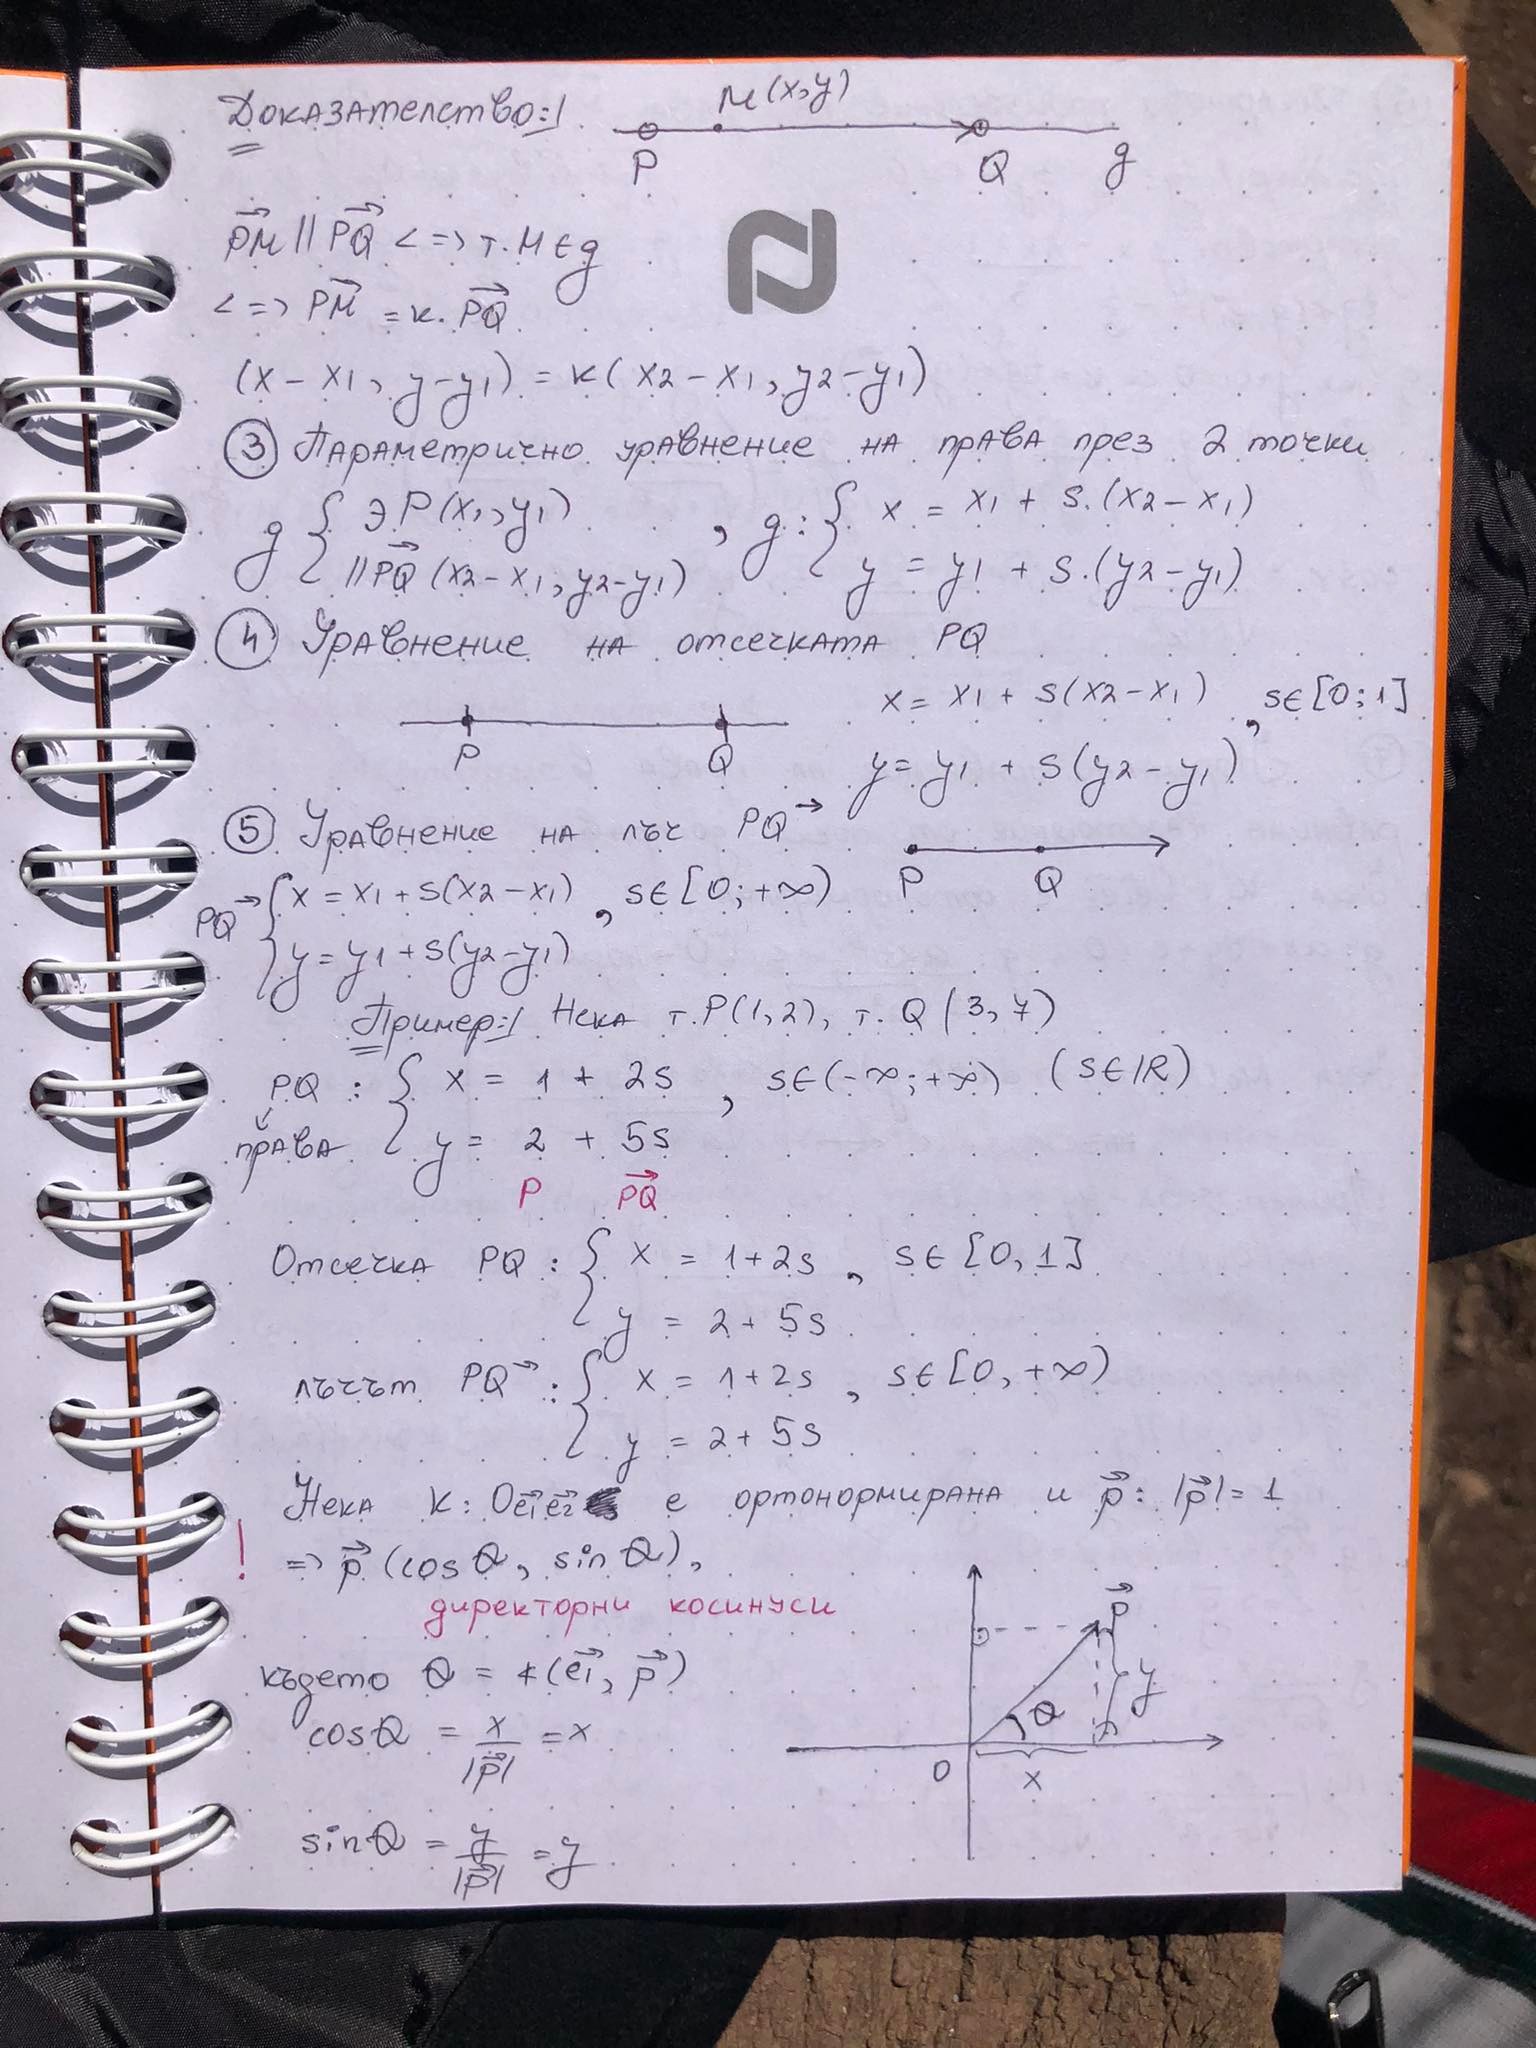 Доказателство:
M(x,y)
P Q g
PM || PQ <=> т. M ∈ g
<=> PM = k. PQ
(x - x1, y - y1) = k(x2 - x1, y2 - y1)
③ Параметрично уравнение на права през 2 точки
g { ∋ P(x1, y1) , g: { x = x1 + s.(x2 - x1)
|| PQ (x2 - x1; y2 - y1) y = y1 + s.(y2 - y1)
④ Уравнение на отсечката PQ
x = x1 + s(x2 - x1) , s ∈ [0; 1]
P Q y = y1 + s(y2 - y1)
⑤ Уравнение на лъч PQ→
P Q
PQ→ { x = x1 + s(x2 - x1) , s ∈ [0; +∞)
y = y1 + s(y2 - y1)
Пример: Нека т. P(1, 2), т. Q(3, 7)
PQ : { x = 1 + 2s , s ∈ (-∞; +∞) (s ∈ IR)
права y = 2 + 5s
P PQ
Отсечка PQ : { x = 1 + 2s , s ∈ [0, 1]
y = 2 + 5s
лъчът PQ→ : { x = 1 + 2s , s ∈ [0, +∞)
y = 2 + 5s
Нека K: Oe1e2 е ортонормирана и p: |p| = 1
! => p (cos θ, sin θ),
директорни косинуси
където θ = ∢(e1, p)
cos θ = x/|p| = x
sin θ = y/|p| = y
p
y
θ
O x